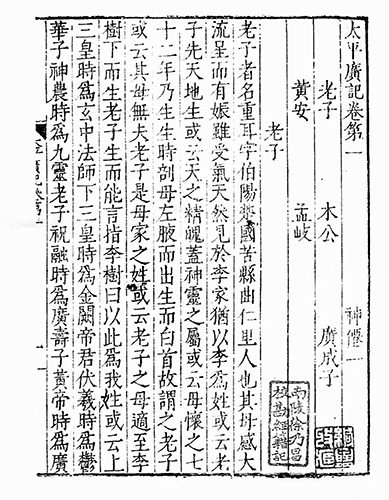 太平廣記卷第一 神僊一
老子 木公 廣成子
黃安 孟岐
老子
老子者名重耳字伯陽楚國苦縣曲仁里人也其母感大
流星而有娠雖受氣天然見於李家猶以李爲姓或云老
子先天地生或云天之精魄蓋神靈之屬或云母懷之七
十二年乃生生時剖母左腋而出生而白首故謂之老子
或云其母無夫老子是母家之姓或云老子之母適至李
樹下而生老子生而能言指李樹曰以此爲我姓或云上
三皇時爲玄中法師下三皇時爲金闕帝君伏羲時爲鬱
華子神農時爲九靈老子祝融時爲廣壽子黃帝時爲廣
南陵徐乃昌
校勘經籍記